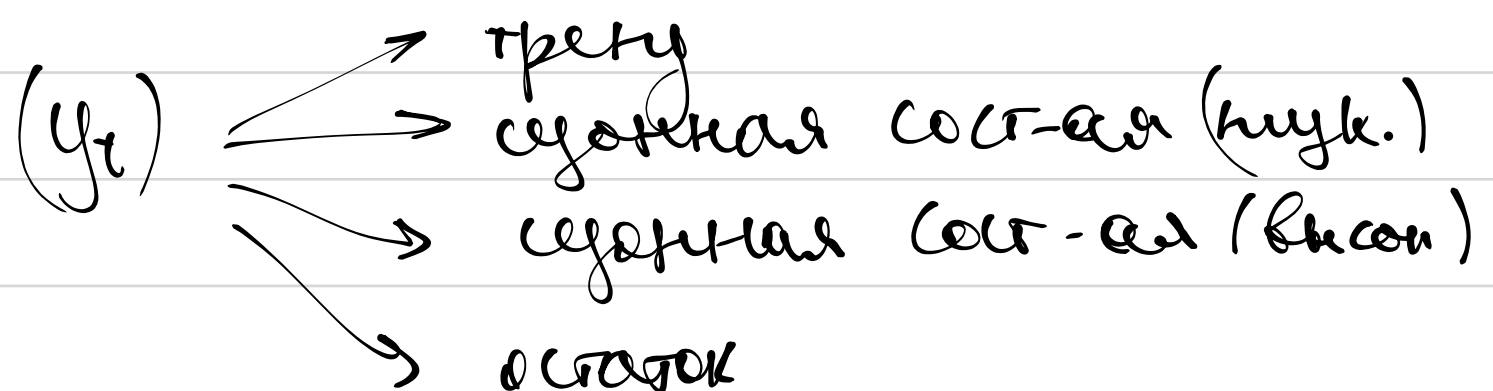 тренд
(yₜ) сезонная сост-ая (низк.)
сезонная сост-ая (высок)
остаток